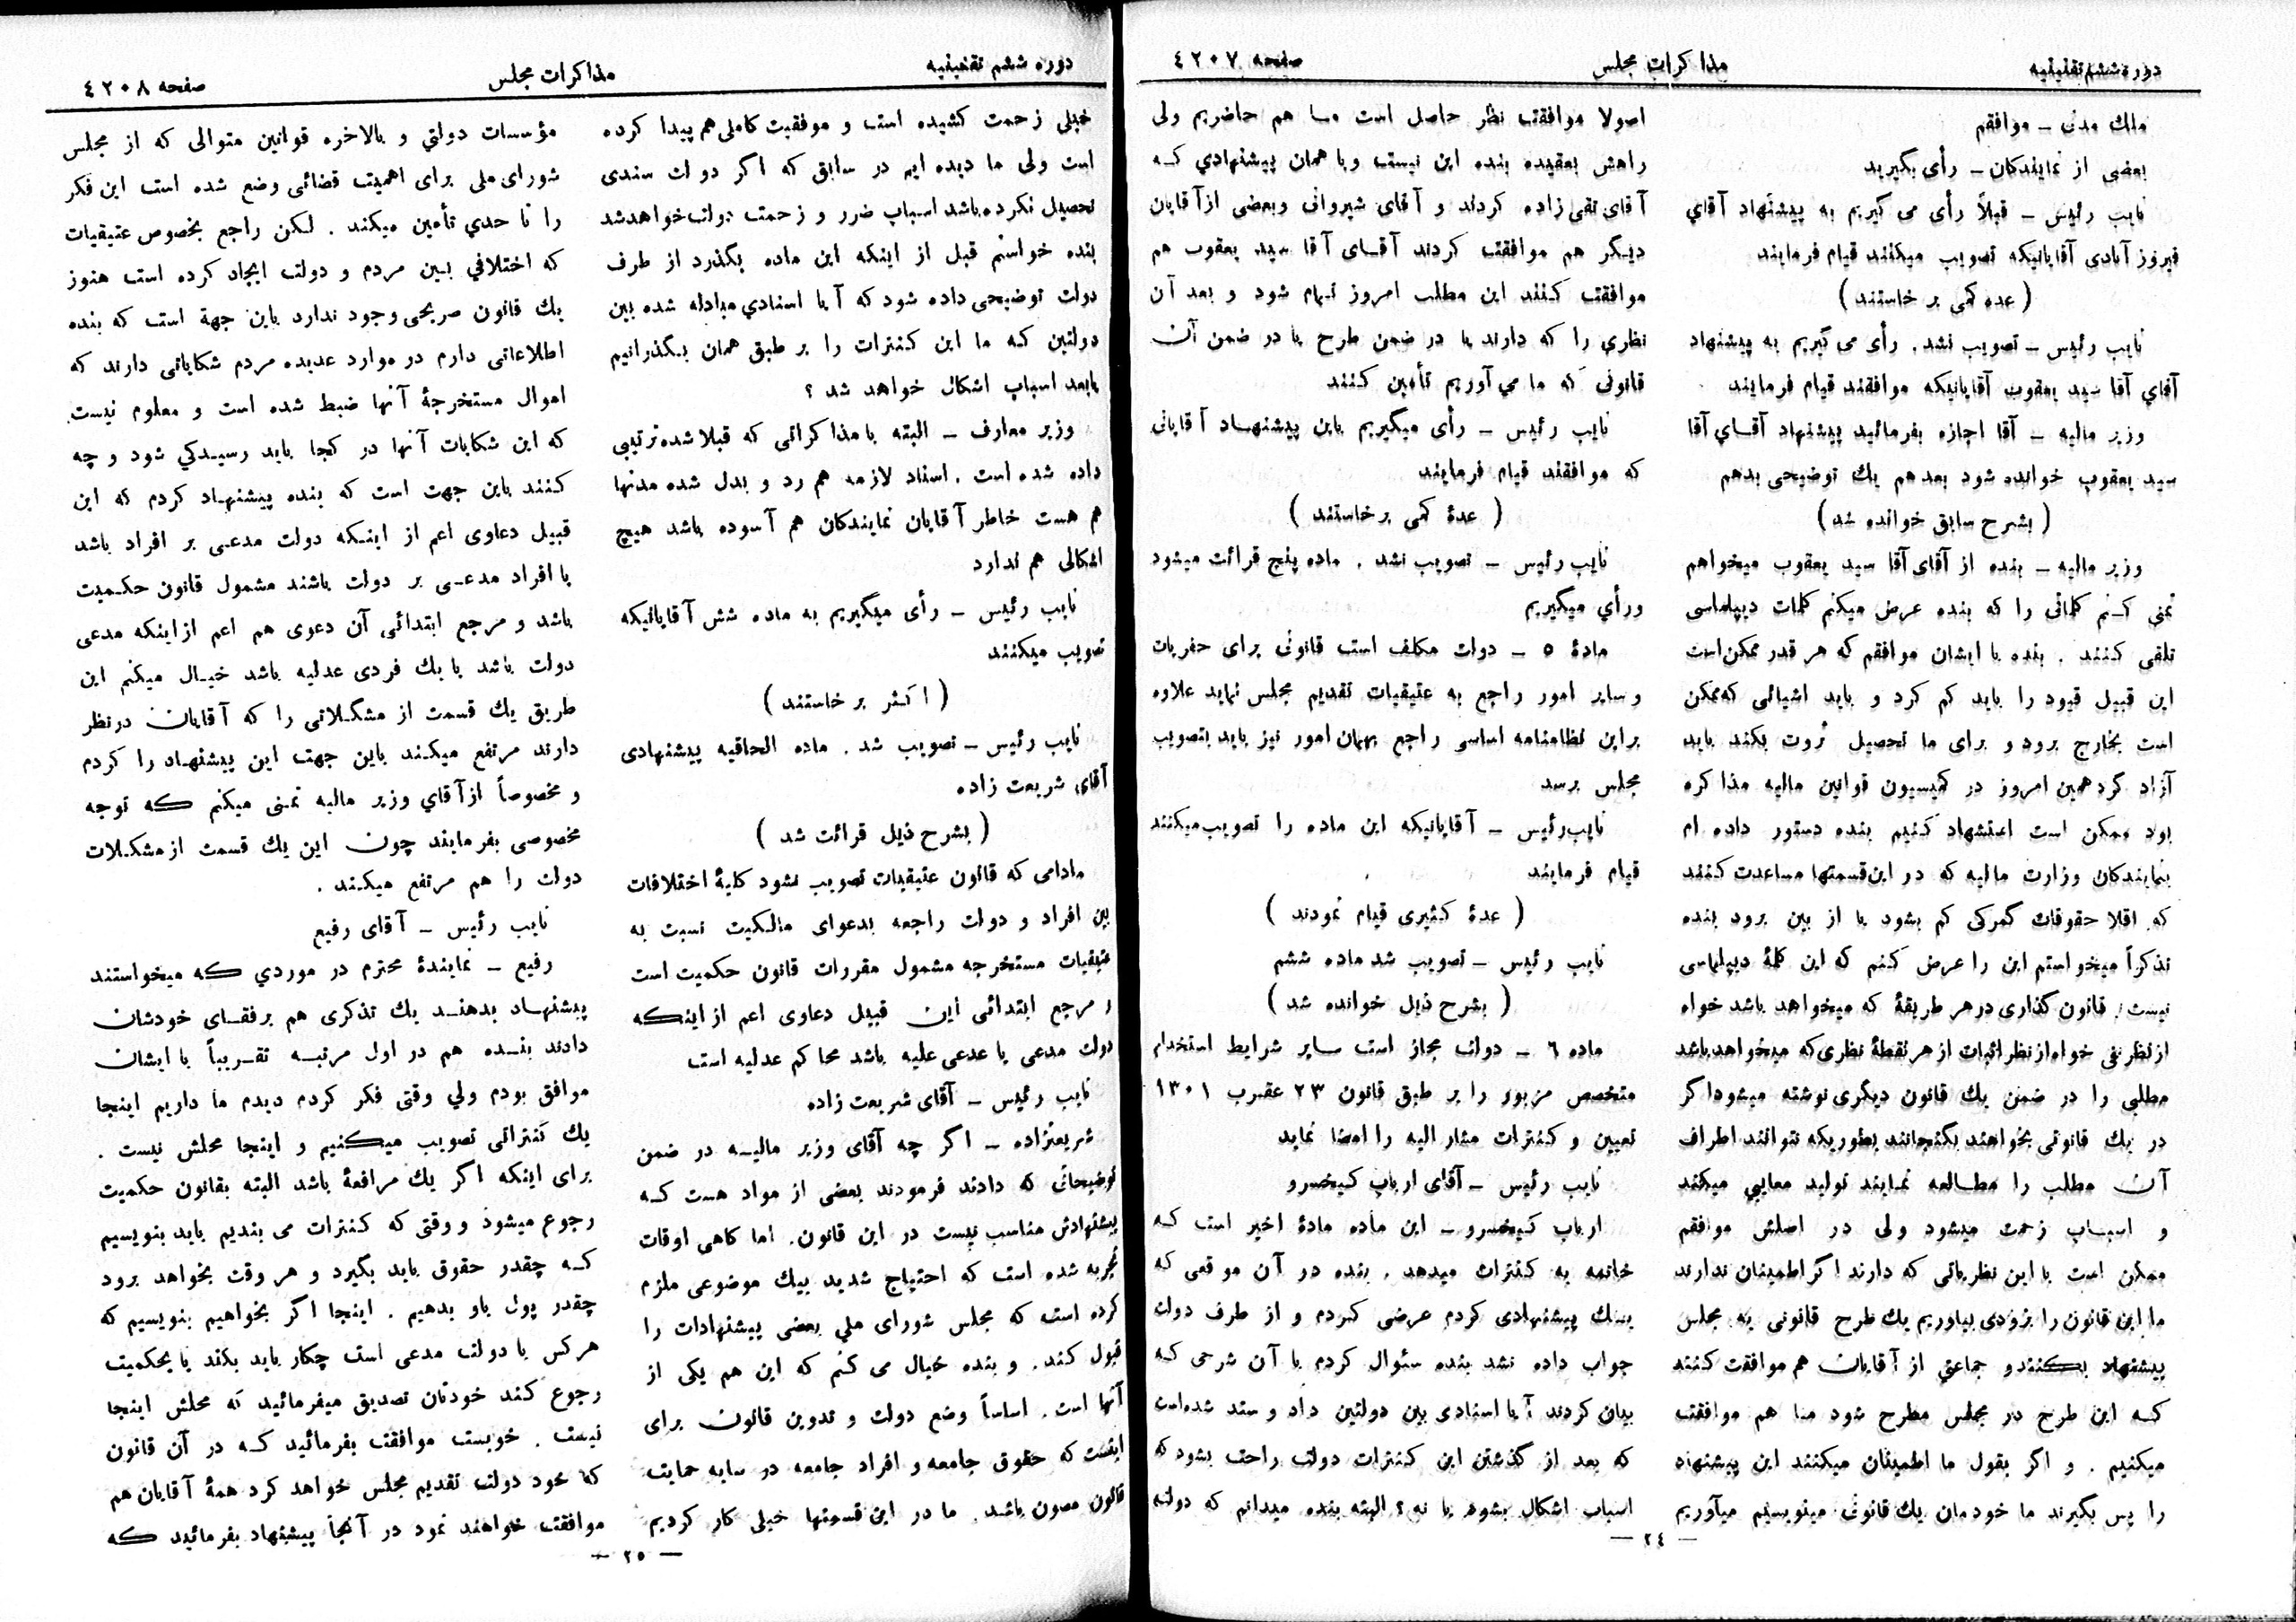 دوره ششم تقنینیه
مذاکرات مجلس
صفحه ٤٢٠٧
ملك مدنی ــ موافقم
بعضی از نمایندکان ــ رأی بگیرید
نایب رئیس ــ قبلاً رأی می گیریم به پیشنهاد آقای
فیروز آبادی آقایانیکه تصویب میکنند قیام فرمایند
( عده کمی بر خاستند )
نایب رئیس ــ تصویب نشد . رأی می گیریم به پیشنهاد
آقاي آقا سید یعقوب آقایانیکه موافقند قیام فرمایند
وزیر مالیه ــ آقا اجازه بفرمائید پیشنهاد آقــاي آقا
سید یعقوب خوانده شود بعد هم یك توضیحی بدهم
( بشرح سابق خوانده شد )
وزیر مالیه ــ بنده از آقای آقا سید یعقوب میخواهم
تمنی کـنم کلماتی را که بنده عرض میکنم کلمات دیپلماسی
تلقی کنند . بنده با ایشان موافقم که هر قدر ممکن است
این قبیل قیود را باید کم کرد و باید اشیائی که ممکن
است بخارج برود و برای ما تحصیل ثروت بکند باید
آزاد کرد همین امروز در کمیسیون قوانین مالیه مذاکره
بود ممکن است استشهاد کنیم بنده دستور داده ام
بنمایندکان وزارت مالیه که در این قسمتها مساعدت کنند
که اقلا حقوقات گمرکی کم بشود یا از بین برود بنده
تذکراً میخواستم این را عرض کنم که این کلمهٔ دیپلماسی
نیست . قانون گذاری در هر طریقهٔ که میخواهد باشد خواه
از نظر نفی خواه از نظر اثبات از هر نقطهٔ نظری که میخواهد باشد
مطلبی را در ضمن یك قانون دیگری نوشته میشود اگر
در یك قانونی بخواهند بگنجانند بطوریکه نتوانند اطراف
آن مطلب را مطـالعه نمایند تولید معایبی میکند
و اسبـاب زحمت میشود ولی در اصلش موافقم
ممکن است با این نظریاتی که دارند اگر اطمینان ندارند
ما این قانون را بزودی بیاوریم یك طرح قانونی به مجلس
پیشنهاد بـکنند و جماعتي از آقایان هم موافقت کنند
کـه این طرح در مجلس مطرح شود منـا هم موافقت
میکنیم . و اگر بقول ما اطمینان میکنند این پیشنهاد
را پس بگیرند ما خودمان یك قانونی مینویسیم میآوریم
اصولا موافقت نظر حاصل است مــا هم حاضریم ولی
راهش بعقیده بنده این نیست وبا همان پیشنهادي کـه
آقای تقی زاده کردند و آقای شیروانی وبعضی از آقایان
دیـگر هم موافقت کردند آقــای آقا سید یعقوب هم
موافقت کـنند این مطلب امروز تـمام شود و بعد آن
نظري را که دارند یا در ضمن طرح یا در ضمن آن
قانونی که ما می آوریم تأمین کـنند
نایب رئیس ــ رأی میگیریم باین پیشنهـاد آقایانی
که موافقند قیام فرمایند
( عدهٔ کمی برخاستند )
نایب رئیس ــ تصویب نشد . ماده پنج قرائت میشود
ورأي میگیریم
مادهٔ ٥ ــ دولت مکلف است قانونی برای حفریات
و سایر امور راجع به عتیقیات تقدیم مجلس نماید علاوه
براین نظامنامه اساسی راجع بهمان امور نیز باید بتصویب
مجلس برسد
نایب رئیس ــ آقایانیکه این ماده را تصویب میکنند
قیام فرمایند
( عدهٔ کثیری قیام نمودند )
نایب رئیس ــ تصویب شد ماده ششم
( بشرح ذیل خوانده شد )
ماده ٦ ــ دولت مجاز است سـایر شرایط استخدام
متخصص مزبور را بر طبق قانون ٢٣ عقرب ١٣٠١
تعیین و کنترات مشار الیه را امضا نماید
نایب رئیس ــ آقای ارباب کیخسرو
ارباب کیخسرو ــ این ماده مادهٔ اخیر است کـه
خاتمه به کنترات میدهد . بنده در آن موقعی که
یــك پیشنهادی کردم عرضی کـردم و از طرف دولت
جواب داده نشد بنده سئوال کردم با آن شرحی کـه
بیان کردند آیا اسنادی بین دولتین داد و ستد شده است
که بعد از گذشتن این کنترات دولت راحت بشود که
اسباب اشکال بشود یا نه ؟ البته بنده میدانم که دولت
ــ ٢٤ ــ
دوره ششم تقنینیه
مذاکرات مجلس
صفحه ٤٢٠٨
خیلی زحمت کشیده است و موفقیت کاملی هم پیدا کرده
است ولی ما دیده ایم در سابق که اگر دولت سندی
تحصیل نکرده باشد اسباب ضرر و زحمت دولت خواهد شد
بنده خواستم قبل از اینکه این ماده بگذرد از طرف
دولت توضیحی داده شود که آیا اسنادي مبادله شده بین
دولتین کـه ما این کنترات را بر طبق همان بـگذرانیم
یا بعد اسباب اشکال خواهد شد ؟
وزیر معارف ــ البته با مذاکراتی که قبلا شده ترتیبی
داده شده است . اسناد لازمه هم رد و بدل شده مدتها
هم هست خاطر آقایان نمایندکان هم آسوده باشد هیچ
اشکالی هم ندارد
نایب رئیس ــ رأی میگیریم به ماده شش آقایانیکه
تصویب میکنند
( اکـثر بر خاستند )
نایب رئیس ــ تصویب شد . ماده الحاقیه پیشنهادی
آقای شریعت زاده
( بشرح ذیل قرائت شد )
مادامی که قانون عتیقیات تصویب نشود کلیهٔ اختلافات
بین افراد و دولت راجعه بدعوای مالـکیت نسبت به
عتیقیات مستخرجه مشمول مقررات قانون حکمیت است
و مرجع ابتدائی این قبیل دعاوی اعم از اینـکه
دولت مدعی یا مدعی علیه باشد محاکم عدلیه است
نایب رئیس ــ آقای شریعت زاده
شریعتزاده ــ اگر چه آقای وزیر مالیــه در ضمن
توضیحاتی که دادند فرمودند بعضی از مواد هست کــه
پیشنهادش مناسب نیست در این قانون . اما کاهی اوقات
تجربه شده است که احتیاج شدید بیك موضوعی ملزم
کرده است که مجلس شورای ملي بعضی پیشنهادات را
قبول کند . و بنده خیال می کـنم که این هم یکی از
آنها است . اساساً وضع دولت و تدوین قانون برای
اینست که حقوق جامعه و افراد جامعه در سایه حمایت
قانون مصون باشد . ما در این قسمتها خیلی کار کردیم
مؤسسات دولتي و بالاخره قوانین متوالی که از مجلس
شورای ملی برای اهمیت قضائی وضع شده است این فکر
را تا حدي تأمین میکند . لـکن راجع بخصوص عتیقیات
که اختلافي بـین مردم و دولت ایجاد کرده است هنوز
یك قانون صریحی وجود ندارد باین جهة است که بنده
اطلاعاتی دارم در موارد عدیده مردم شکایاتی دارند که
اموال مستخرجهٔ آنها ضبط شده است و معلوم نیست
که این شکایات آنها در کجا باید رسیـدکي شود و چه
کـنند باین جهت است که بنده پیشنهـاد کردم که این
قبیل دعاوی اعم از اینـکه دولت مدعـی بر افراد باشد
یا افراد مدعـی بر دولت باشند مشمول قانون حکـمیت
باشد و مرجع ابتدائي آن دعوی هم اعم از اینکه مدعی
دولت باشد یا یك فردی عدلیه باشد خیـال میکنم این
طریق یك قسمت از مشگـلاتی را که آقایان در نظر
دارند مرتفع میکـند باین جهت این پیشنهـاد را کردم
و مخصوصاً از آقاي وزیر مالیه تمنی میکنم کـه توجه
مخصوصی بفرمایند چون این یك قسمت از مشکـلات
دولت را هم مرتفع میکـند .
نایب رئیس ــ آقای رفیع
رفیع ــ نمایندهٔ محترم در موردي کـه میخواستند
پیشنهـاد بدهنـد یك تذکری هم برفقـای خودشان
دادند بنـده هم در اول مرتبـه تقـریباً با ایشان
موافق بودم ولي وقتی فکر کردم دیدم ما داریم اینجا
یك کنتراتی تصویب میـکنیم و اینجا محلش نیست .
برای اینکه اگر یك مرافعهٔ باشد البته بقانون حکمیت
رجوع میشود و وقتی که کنترات می بندیم باید بنویسیم
کـه چقدر حقوق باید بگیرد و هر وقت بخواهد برود
چقدر پول باو بدهیم . اینجا اگر بخواهیم بنویسیم که
هرکس با دولت مدعی است چکار باید بکند یا بحکمیت
رجوع کند خودتان تصدیق میفرمائید که محلش اینجا
نیست . خوبست موافقت بفرمائید کـه در آن قانون
که خود دولت تقدیم مجلس خواهد کرد همهٔ آقایان هم
موافقت خواهند نمود در آنجا پیشنهاد بفرمائید کـه
ــ ٢٥ ــ